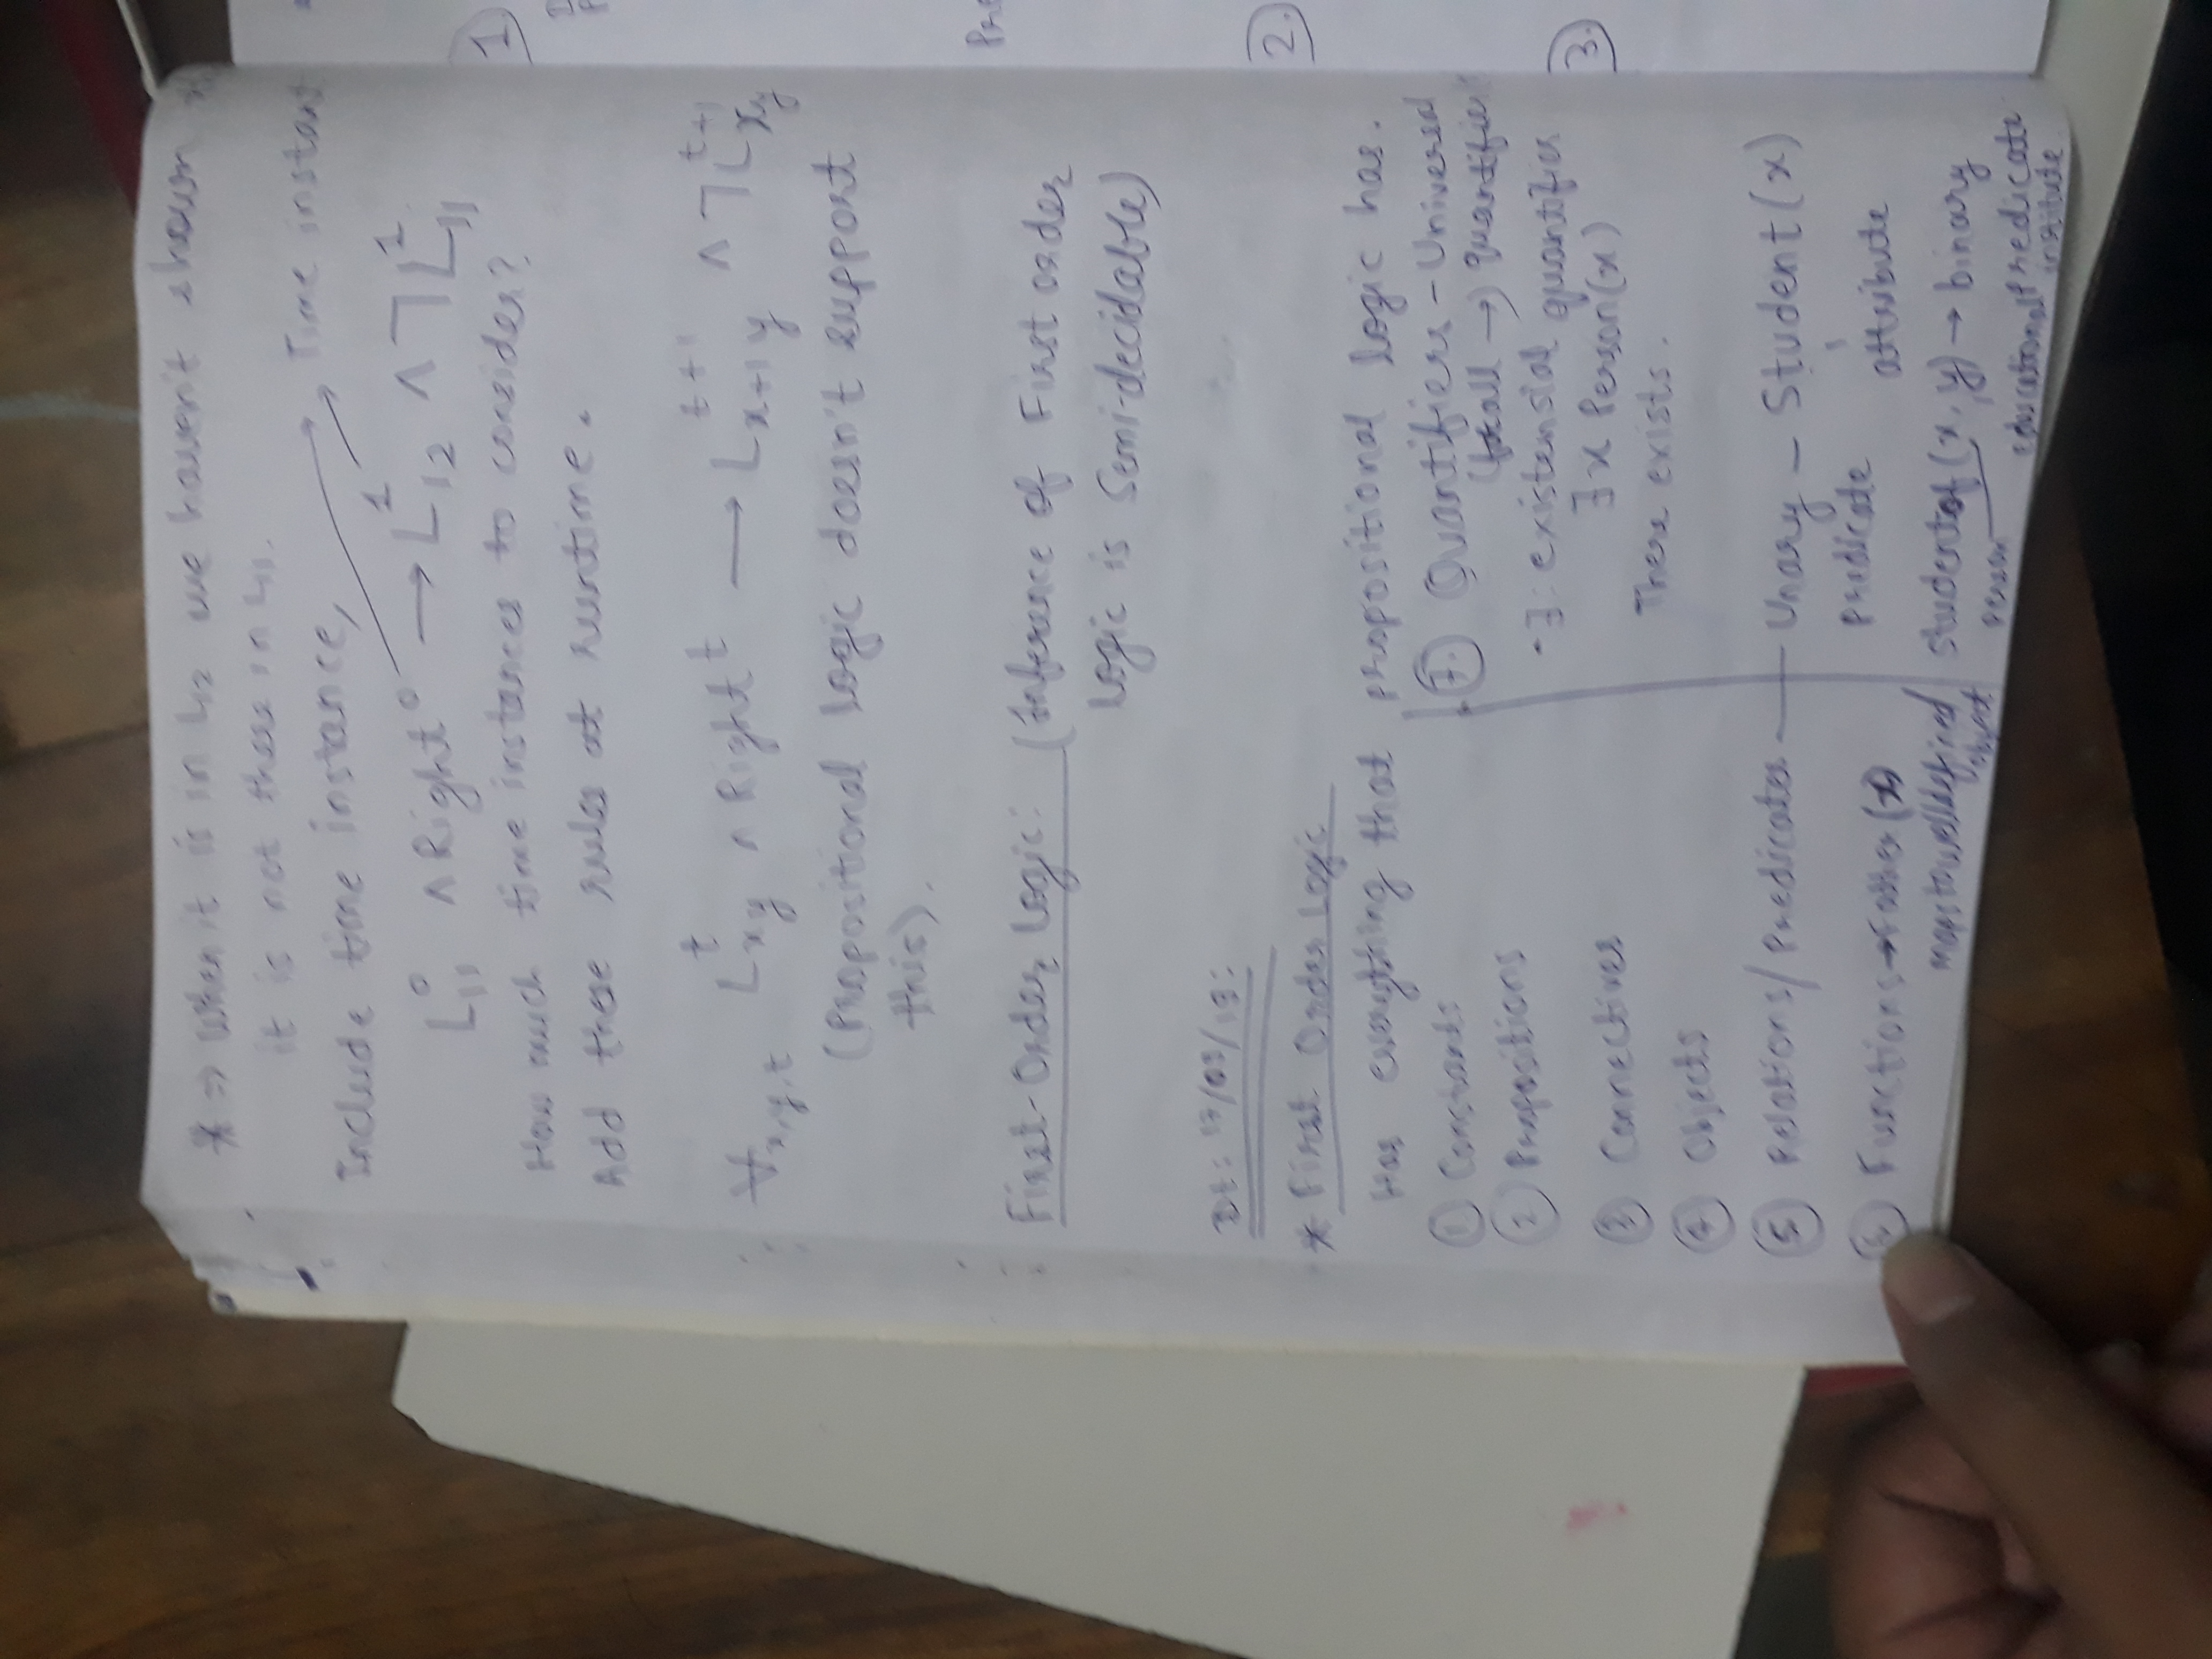 * ⇒ When it is in L12 we haven't shown
it is not there in L11.
Include time instance,
L11^0 ∧ Right^0 → L12^1 ∧ ¬L11^1
Time instant
How much time instances to consider?
Add these rules at runtime.
∀x,y,t Lxy^t ∧ Right^t → Lx+1y^t+1 ∧ ¬Lxy^t+1
(Propositional logic doesn't support
this).
First-Order Logic: (Inference of First order
logic is Semi-decidable)
* First Order Logic
Has everything that propositional logic has.
① Constants
② Propositions
③ Connectives
④ Objects
⑤ Relations/Predicates — Unary - Student(x)
predicate attribute
Functions → Father(x)
maps to welldefined
object
studentof(x,y) → binary
predicate
person
educational
institute
⑦. Quantifiers - Universal
(forall →) quantifier
- ∃: existensial quantifier
∃x Person(x)
There exists.
1.
2.
3.